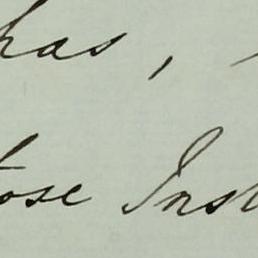 has,
ose Inst